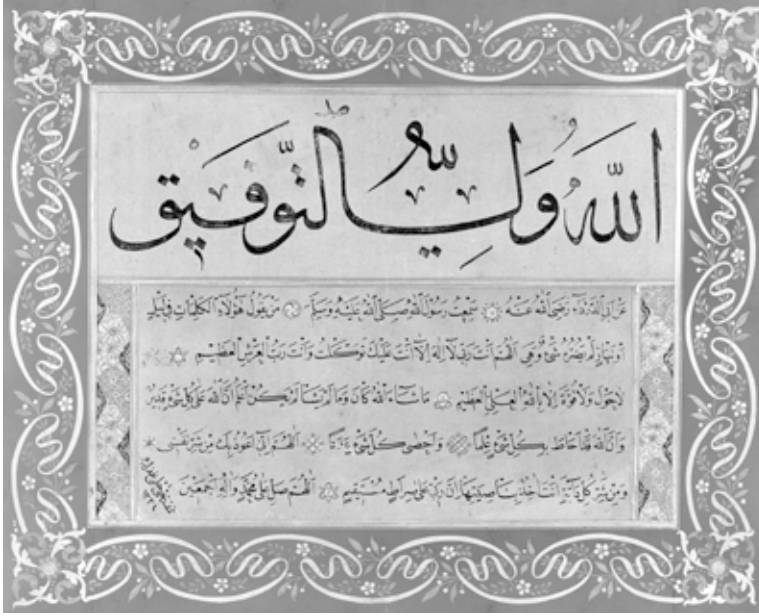 اللهُ وَلِيُّ التَّوفِيق
عَنْ أَبِي الدَّرْدَاءِ رَضِيَ اللهُ عَنْهُ سَمِعْتُ رَسُولَ اللهِ صَلَّى اللهُ عَلَيْهِ وَسَلَّمَ مَنْ يَقُولُ هَؤُلَاءِ الْكَلِمَاتِ فِي لَيْلٍ
أَوْ نَهَارٍ لَمْ يَضُرَّهُ شَيْءٌ وَهِيَ اللَّهُمَّ أَنْتَ رَبِّي لَا إِلَهَ إِلَّا أَنْتَ عَلَيْكَ تَوَكَّلْتُ وَأَنْتَ رَبُّ الْعَرْشِ الْعَظِيمِ
لَا حَوْلَ وَلَا قُوَّةَ إِلَّا بِاللهِ الْعَلِيِّ الْعَظِيمِ مَا شَاءَ اللهُ كَانَ وَمَا لَمْ يَشَأْ لَمْ يَكُنْ أَعْلَمُ أَنَّ اللهَ عَلَى كُلِّ شَيْءٍ قَدِيرٌ
وَأَنَّ اللهَ قَدْ أَحَاطَ بِكُلِّ شَيْءٍ عِلْمًا وَأَحْصَى كُلَّ شَيْءٍ عَدَدًا اللَّهُمَّ إِنِّي أَعُوذُ بِكَ مِنْ شَرِّ نَفْسِي
وَمِنْ شَرِّ كُلِّ دَابَّةٍ أَنْتَ آخِذٌ بِنَاصِيَتِهَا إِنَّ رَبِّي عَلَى صِرَاطٍ مُسْتَقِيمٍ اللَّهُمَّ صَلِّ عَلَى مُحَمَّدٍ وَآلِهِ أَجْمَعِينَ